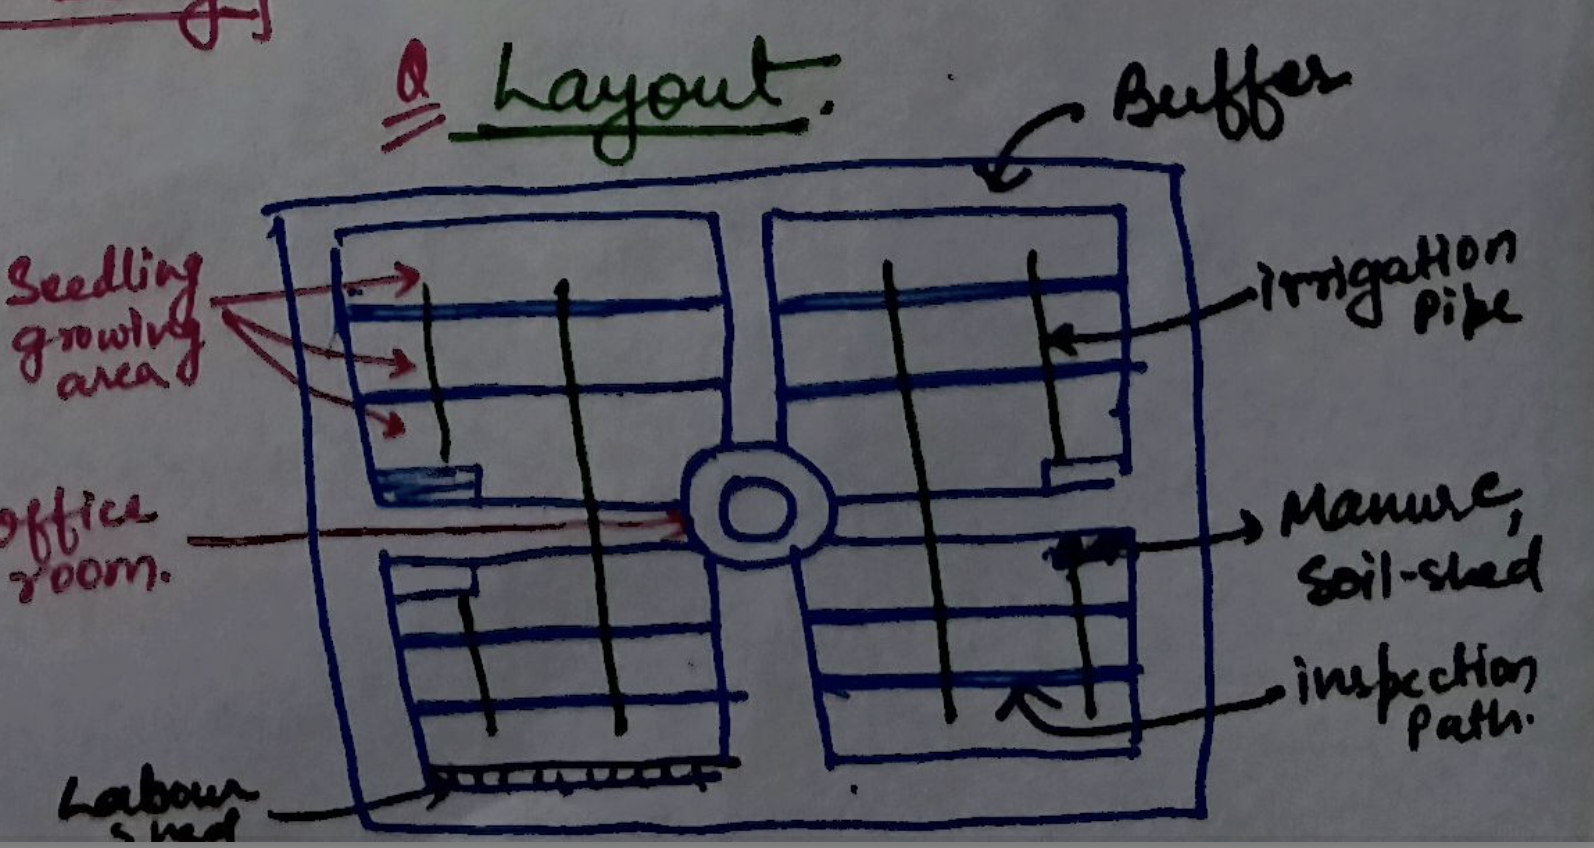 Q Layout.
Buffer
Seedling
growing
area
irrigation
pipe
Office
room.
Manure,
Soil-shed
inspection
Path.
Labour
shed